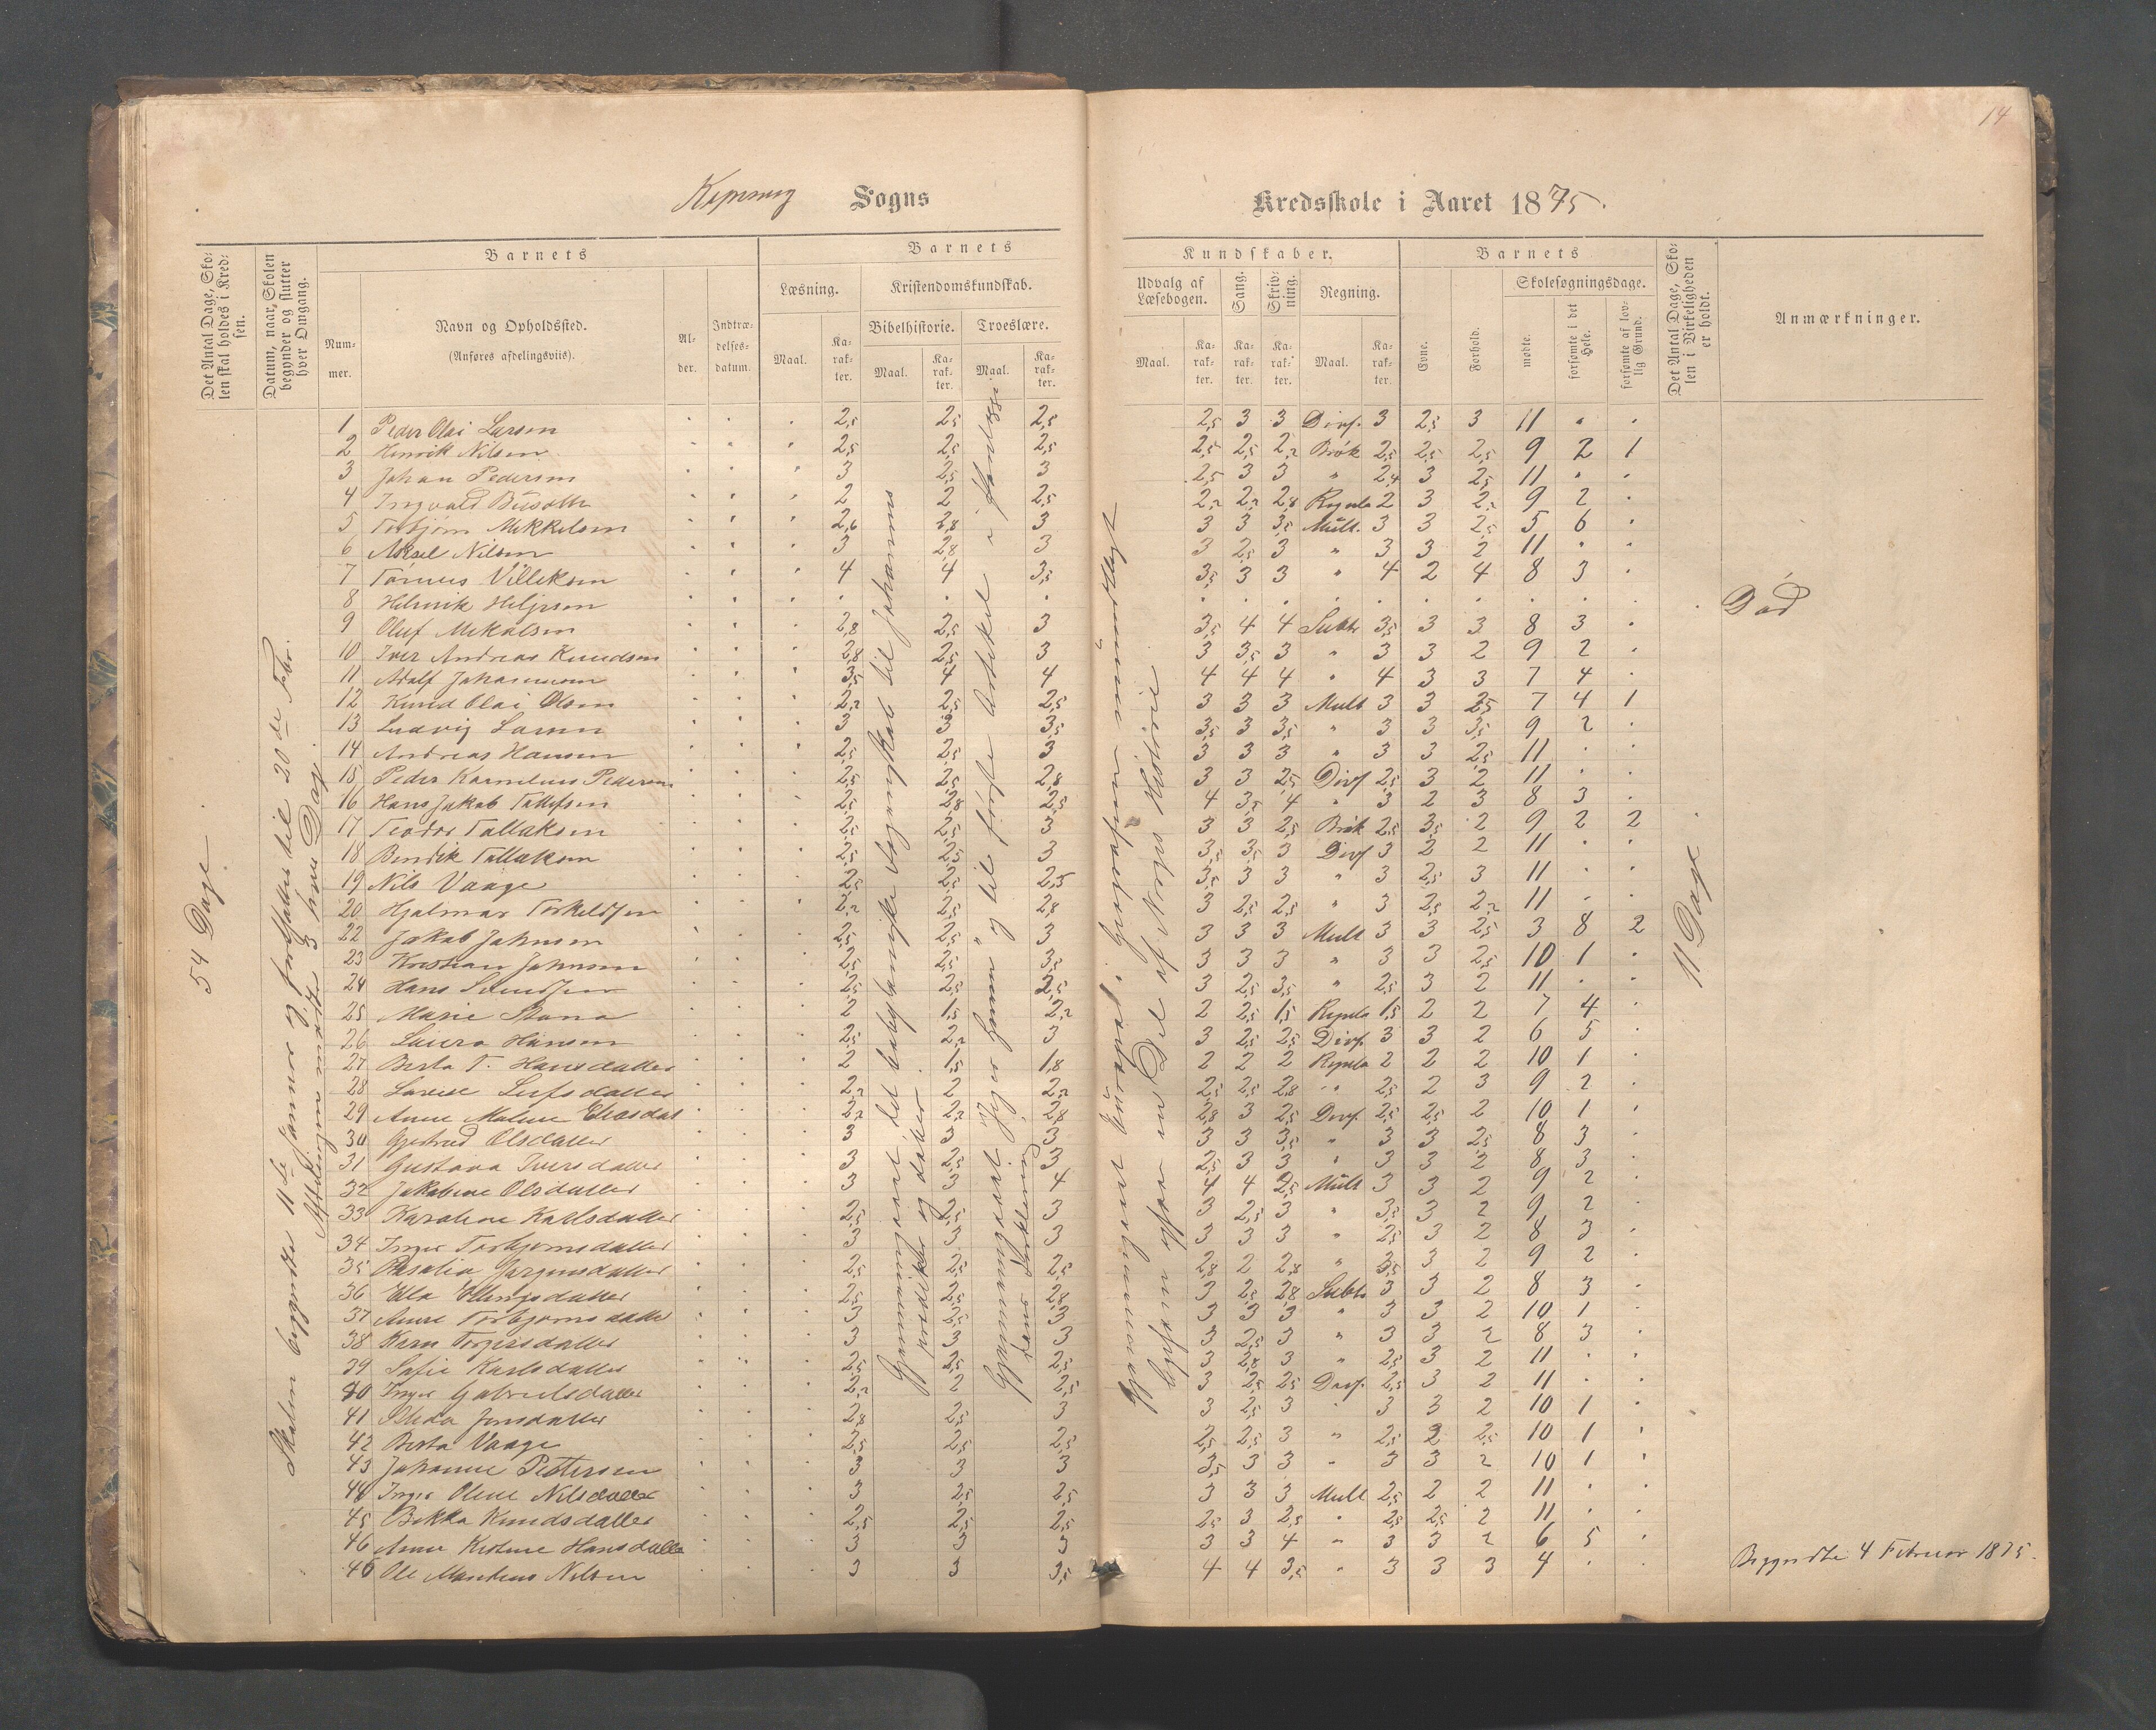 14
Sogns
Kredsskole i Aaret 1875.
Det Antal Dage, Sko-
len skal holdes i Kred-
sen.
Datum, naar Skolen
begynder og slutter
hver Omgang.
Barnets
Num-
mer.
Navn og Opholdssted.
(Anføres afdelingsviis).
Al-
der.
Indtræ-
delses-
datum.
Barnets
Læsning.
Kristendomskundskab.
Bibelhistorie.
Troeslære.
Maal.
Ka-
rak-
ter.
Maal.
Ka-
rak-
ter.
Maal.
Ka-
rak-
ter.
Kundskaber.
Udvalg af
Læsebogen.
Sang.
Skriv-
ning.
Regning.
Maal.
Ka-
rak-
ter.
Ka-
rak-
ter.
Ka-
rak-
ter.
Maal.
Ka-
rak-
ter.
Barnets
Evne.
Forhold.
Skolesøgningsdage.
mødte.
forsømte i det
Hele.
forsømte af lov-
lig Grund.
Det Antal Dage, Sko-
len i Virkeligheden
er holdt.
Anmærkninger.
54 Dage.
Skolen begyndte 11te Januar og fortsattes til 20de Febr.
Afdelingen mødte 3 hver Dag.
Gjennemgaaet det babyloniske Fangenskab til Johannes
prædiker og døber.
til første Artikel i
11 Dage
1 Peder Olai Larsen 2,5 2,5 2,5 2,5 3 3 Divs. 3 2,5 3 11
2 Henrik Nilsen 2,5 2,5 2,5 2,5 2,5 2,2 Brøk 2,5 2,5 2,5 9 2 1
3 Johan Pedersen 3 2,5 3 2,5 3 3 " 2,4 3 2,5 11
4 Ingvald 2 2 2,5 2,2 2,2 2,8 2 3 2,5 9 2
5 Torbjørn Mikkelsen 2,6 2,8 3 3 3 3,5 Mult. 3 3 2,5 5 6
6 Aksel Nilsen 3 2,8 3 3 2,5 3 " 3 3 2 11
7 4 4 3,5 3,5 3 3 " 4 2 4 8 3
8 Død
9 Oluf Mikalsen 2,8 2,5 3 3,5 4 4 Subtr 3,5 3 3 8 3
10 Iver Andreas Knudsen 2,8 2,5 3 3 3,5 3 " 3 3 2 9 2
11 Adolf Johannesen 3,5 4 4 4 4 4 " 4 3 3 7 4
12 Knud Olai Olsen 2,2 2,5 2,5 3 3 3 Mult 3 3 2,5 7 4 1
13 Ludvig Larsen 3 3 3,5 3,5 3 3,5 " 3 3 3,5 9 2
14 Andreas Hansen 2,5 2,5 3 3 3 3 " 3 3 2,5 11
15 Peder Kornelius Pedersen 2,5 2,5 2,8 3 3 2,5 Divs 2,5 3 2 11
16 Hans Jakob 2,5 2,8 2,5 4 3,5 4 " 3 2 3 8 3
17 Teodor Tollaksen 2,5 2,5 3 3 3 2,5 Brøk 2,5 3,5 2 9 2 2
18 Bendik Tollaksen 2,5 2,5 3 3,5 3,5 3 Divs 3 2 2 11
19 Nils Vaage 2,5 2,5 2,5 3,5 3 3 " 3 2,5 3 11
20 Hjalmar Torkeldsen 2,2 2,5 2,8 3 2,5 2,5 " 3 2,5 2,2 11
22 Jakob Johnsen 2,5 2,5 3 3 3 3 Mult 3 3 2,5 3 8 2
23 Kristian Johnsen 2,5 2,5 3,5 3 3 3 " 3 3 2,5 10 1
24 Hans Svendsen 2,5 2,5 2,5 3 2,5 3,5 " 2,5 3 2 11
25 Marie 2 1,5 2,2 2 2,5 1,5 1,5 2 2 7 4
26 Laura Hansen 2,5 2,2 3 3 2,5 2,5 Divs. 3 3 2 6 5
27 Berta T. Hansdatter 2 1,5 1,8 2 2 2 2 2 2 10 1
28 2,2 2 2,2 2,5 2,5 2,8 " 2,5 2 3 9 2
29 Anne Malene 2,2 2,2 2,8 2,8 3 2,5 Divs. 2,5 2,5 2 10 1
30 Gjertrud Olsdatter 3 3 3 3 3 3,5 " 3 3 2,5 8 3
31 Gustava Iversdatter 3 2,5 3 2,5 3 3 " 3 3 2 8 3
32 Jakobine Olsdatter 3 3 4 4 4 2,5 Mult 3 3 2 9 2
33 Karoline Karlsdatter 2,5 2,5 3 3 2,5 3 " 3,5 3 2 9 2
34 Inger Torbjørnsdatter 3 3 3 3 3 3 " 2,5 3 2 8 3
35 Rosalia Jørgensdatter 2,5 2,5 2,5 2,8 2 2,8 " 3,5 3 2 9 2
36 Ella 2,5 2,5 2,8 3 2,5 2,8 Subtr 3 3 2 8 3
37 Anne Torbjørnsdatter 3 3,5 3 3 3 3 " 3 3 2 10 1
38 Karn Torgersdatter 3 3 3 3 2,5 3 " 3 3 2 8 3
39 Sofie Karlsdatter 2,5 2,5 2,5 3 2,8 3 " 2,5 3 2 11
40 Inger Gabrielsdatter 2,2 2 2,5 3 2,5 2,5 Divs. 2,5 3 2 11
41 Jensdatter 2,8 2,5 3 3 2,5 3 " 3 3 2 10 1
42 Berta Vaage 2,5 2,5 2,5 2,5 2,5 3 " 2,5 2 2,5 10 1
43 Johanne Pettersen 3 3 3 3,5 3 3 " 3 3 2 10 1
44 Inger Oline Nilsdatter 3 2,5 2,5 3 3 3 Mult 2,5 2 2 11
45 Bekka Knudsdatter 2,5 2,5 2,5 2,5 3 2,5 " 2,5 2,5 2 11
46 Anne Kirstine Hansdatter 3 3 3 3 3 4 " 3 3 2 6 5
46 Ole Nilsen 3 3 3,5 4 4 3,5 " 3 3 3 4 Begyndte 4 Februar 1875.